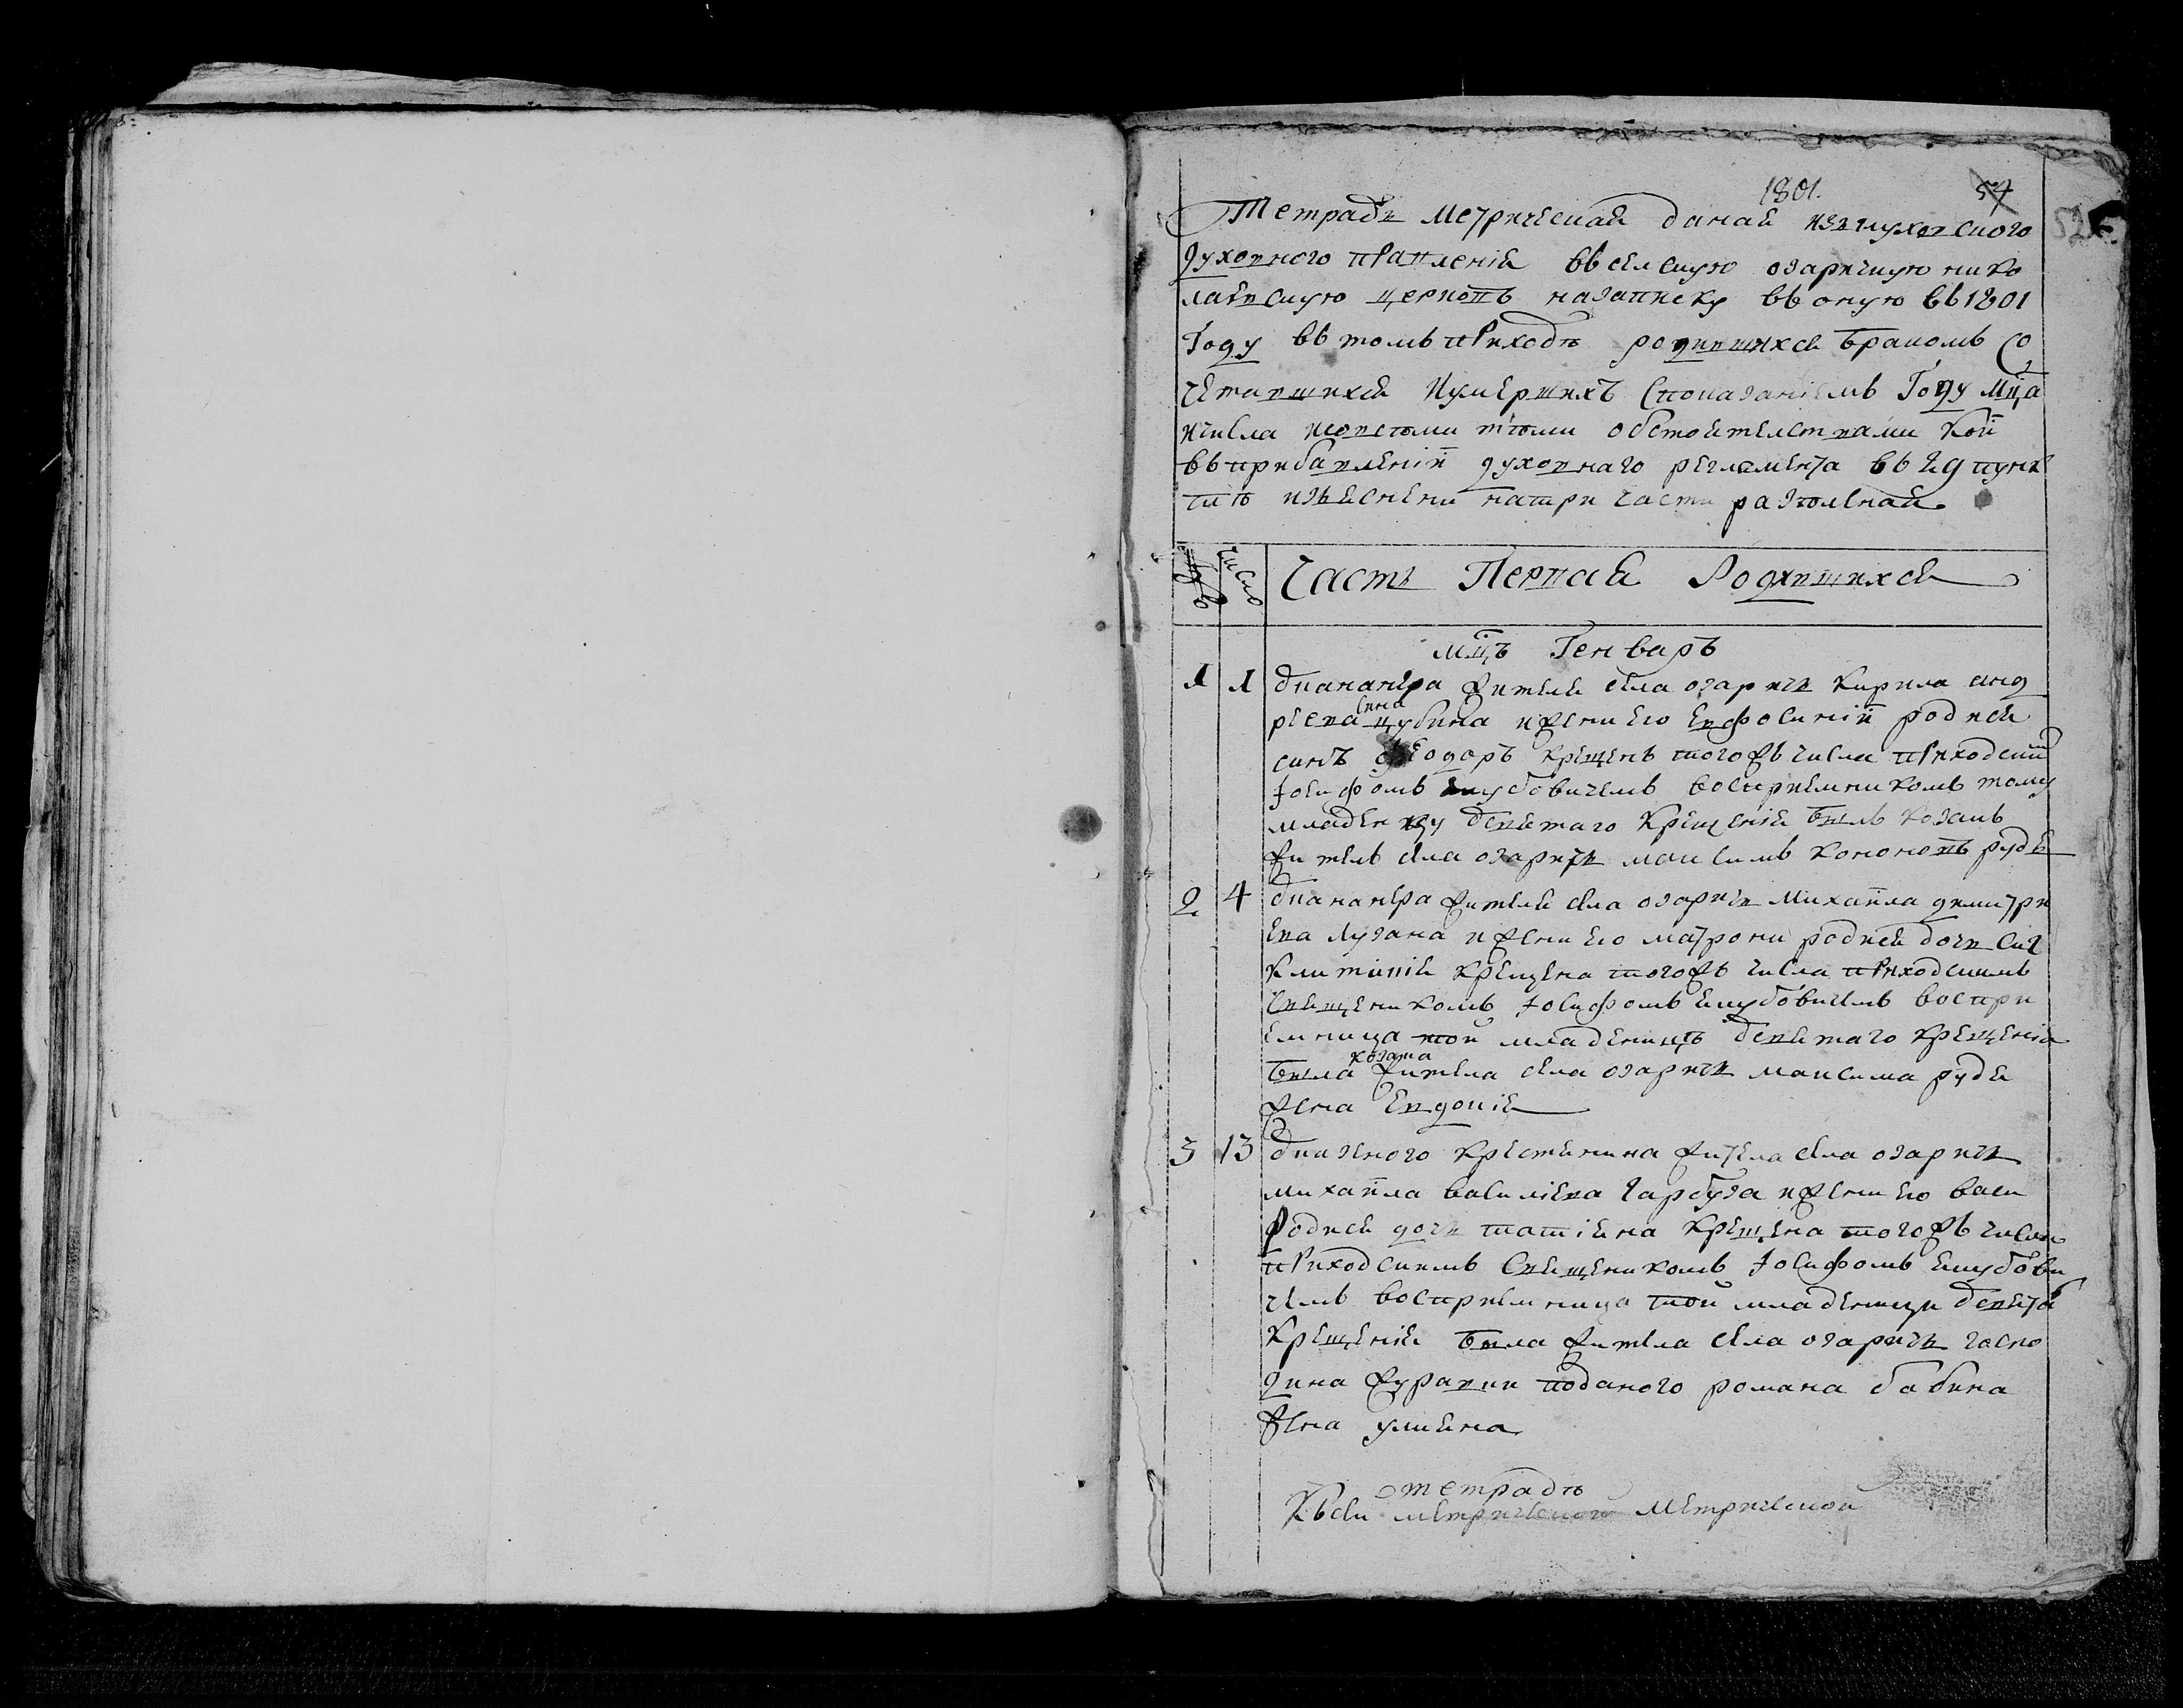 1801. 54
52
Тетрадь Метрическая даная изъ глуховского
духовного правленія въ селскую озарицкую нико
лаевскую церковъ на записку въ оную въ 1801
Году въ томъ приходѣ родившихся бракомъ со
четавшихся и умершихъ с показаніемъ Году мца
и числа и со всѣми тѣми обстоятелствами кои
въ прибавленіи духовнаго регламента въ пунк
тѣ изъяснени на три части раздѣленая
число
Часть Первая Родившихся
мцъ Генваръ
1 1
жителя села озаричь Кирила анд
реева сина и жени его Евфосиніи родися
синъ феодоръ крещенъ того жъ числа приходским
Іосифомъ воспріемникомъ тому
младенцу святаго крещенія былъ козакъ
житель села озаричь максимъ кононовъ рудь
2 4
жителя села озаричь Михаила димитри
ева Лузана и жени его матрони родися дочь
клитикія крещена того жъ числа приходскимъ
священикомъ Іосифомъ воспри
емница той младеници святаго крещенія
была козака жителя села озаричь максима рудя
жена Евдокія
3 13
крестянина жителя села озаричь
михаила василіева гарбуза и жени его васи
родися дочь татіяна крещена того жъ числа
приходскимъ священикомъ Іосифомъ
чемъ воспріемница той младеници свята
крещенія была жителя села озаричь госпо
дина журавки поданого романа бабина
жена уляна
тетрадѣ
Къ сей метрического метрической